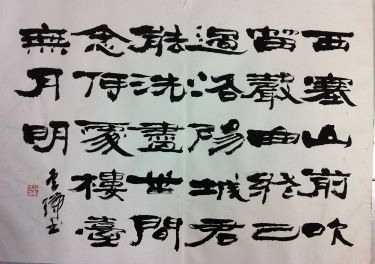 西塞山前吹
笛聲曲終已
過洛陽城君
能洗盡世間
念何處樓臺
無月明